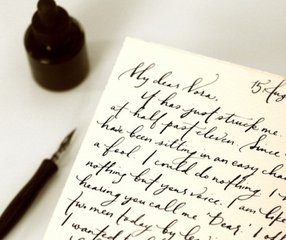 15 Aug
My dear Nora,
it has just struck me.
at half past eleven. Since
have been sitting in an easy chair
a fool. I could do nothing. I
nothing but your voice. I am like
hearing you call me 'Dear.' I
two men today by
I wanted